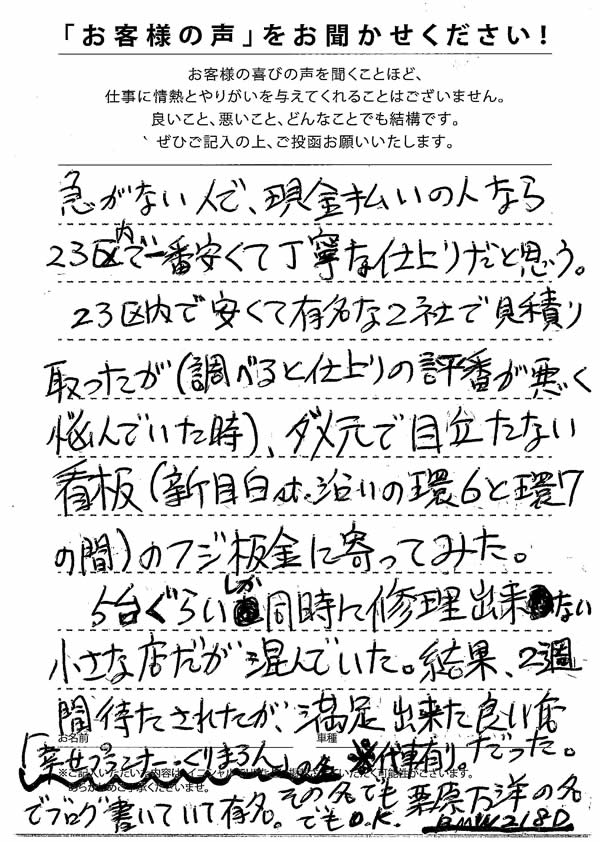 「お客様の声」をお聞かせください！
お客様の喜びの声を聞くことほど、
仕事に情熱とやりがいを与えてくれることはございません。
良いこと、悪いこと、どんなことでも結構です。
ぜひご記入の上、ご投函お願いいたします。
急がない人で、現金払いの人なら
23区内で一番安くて丁寧な仕上りだと思う。
23区内で安くて有名な2社で見積り
取ったが(調べると仕上りの評番が悪く
悩んでいた時)、ダメ元で目立たない
看板(新目白 沿いの環6と環7
の間)のフジ板金に寄ってみた。
5台ぐらいしか同時に修理出来ない
小さな店だが混んでいた。結果、2週
間待たされたが、満足出来た良い店
お名前
車種
「幸せプランナー・くりまろん」の名 ※代車有り。だった。
※ご記入いただいた内容は、イニシャル
可能性がございます。
あらかじめご了承くださいませ。
でブログ書いていて有名。その名でも 栗原万洋の名
でもO.K. BMW218D